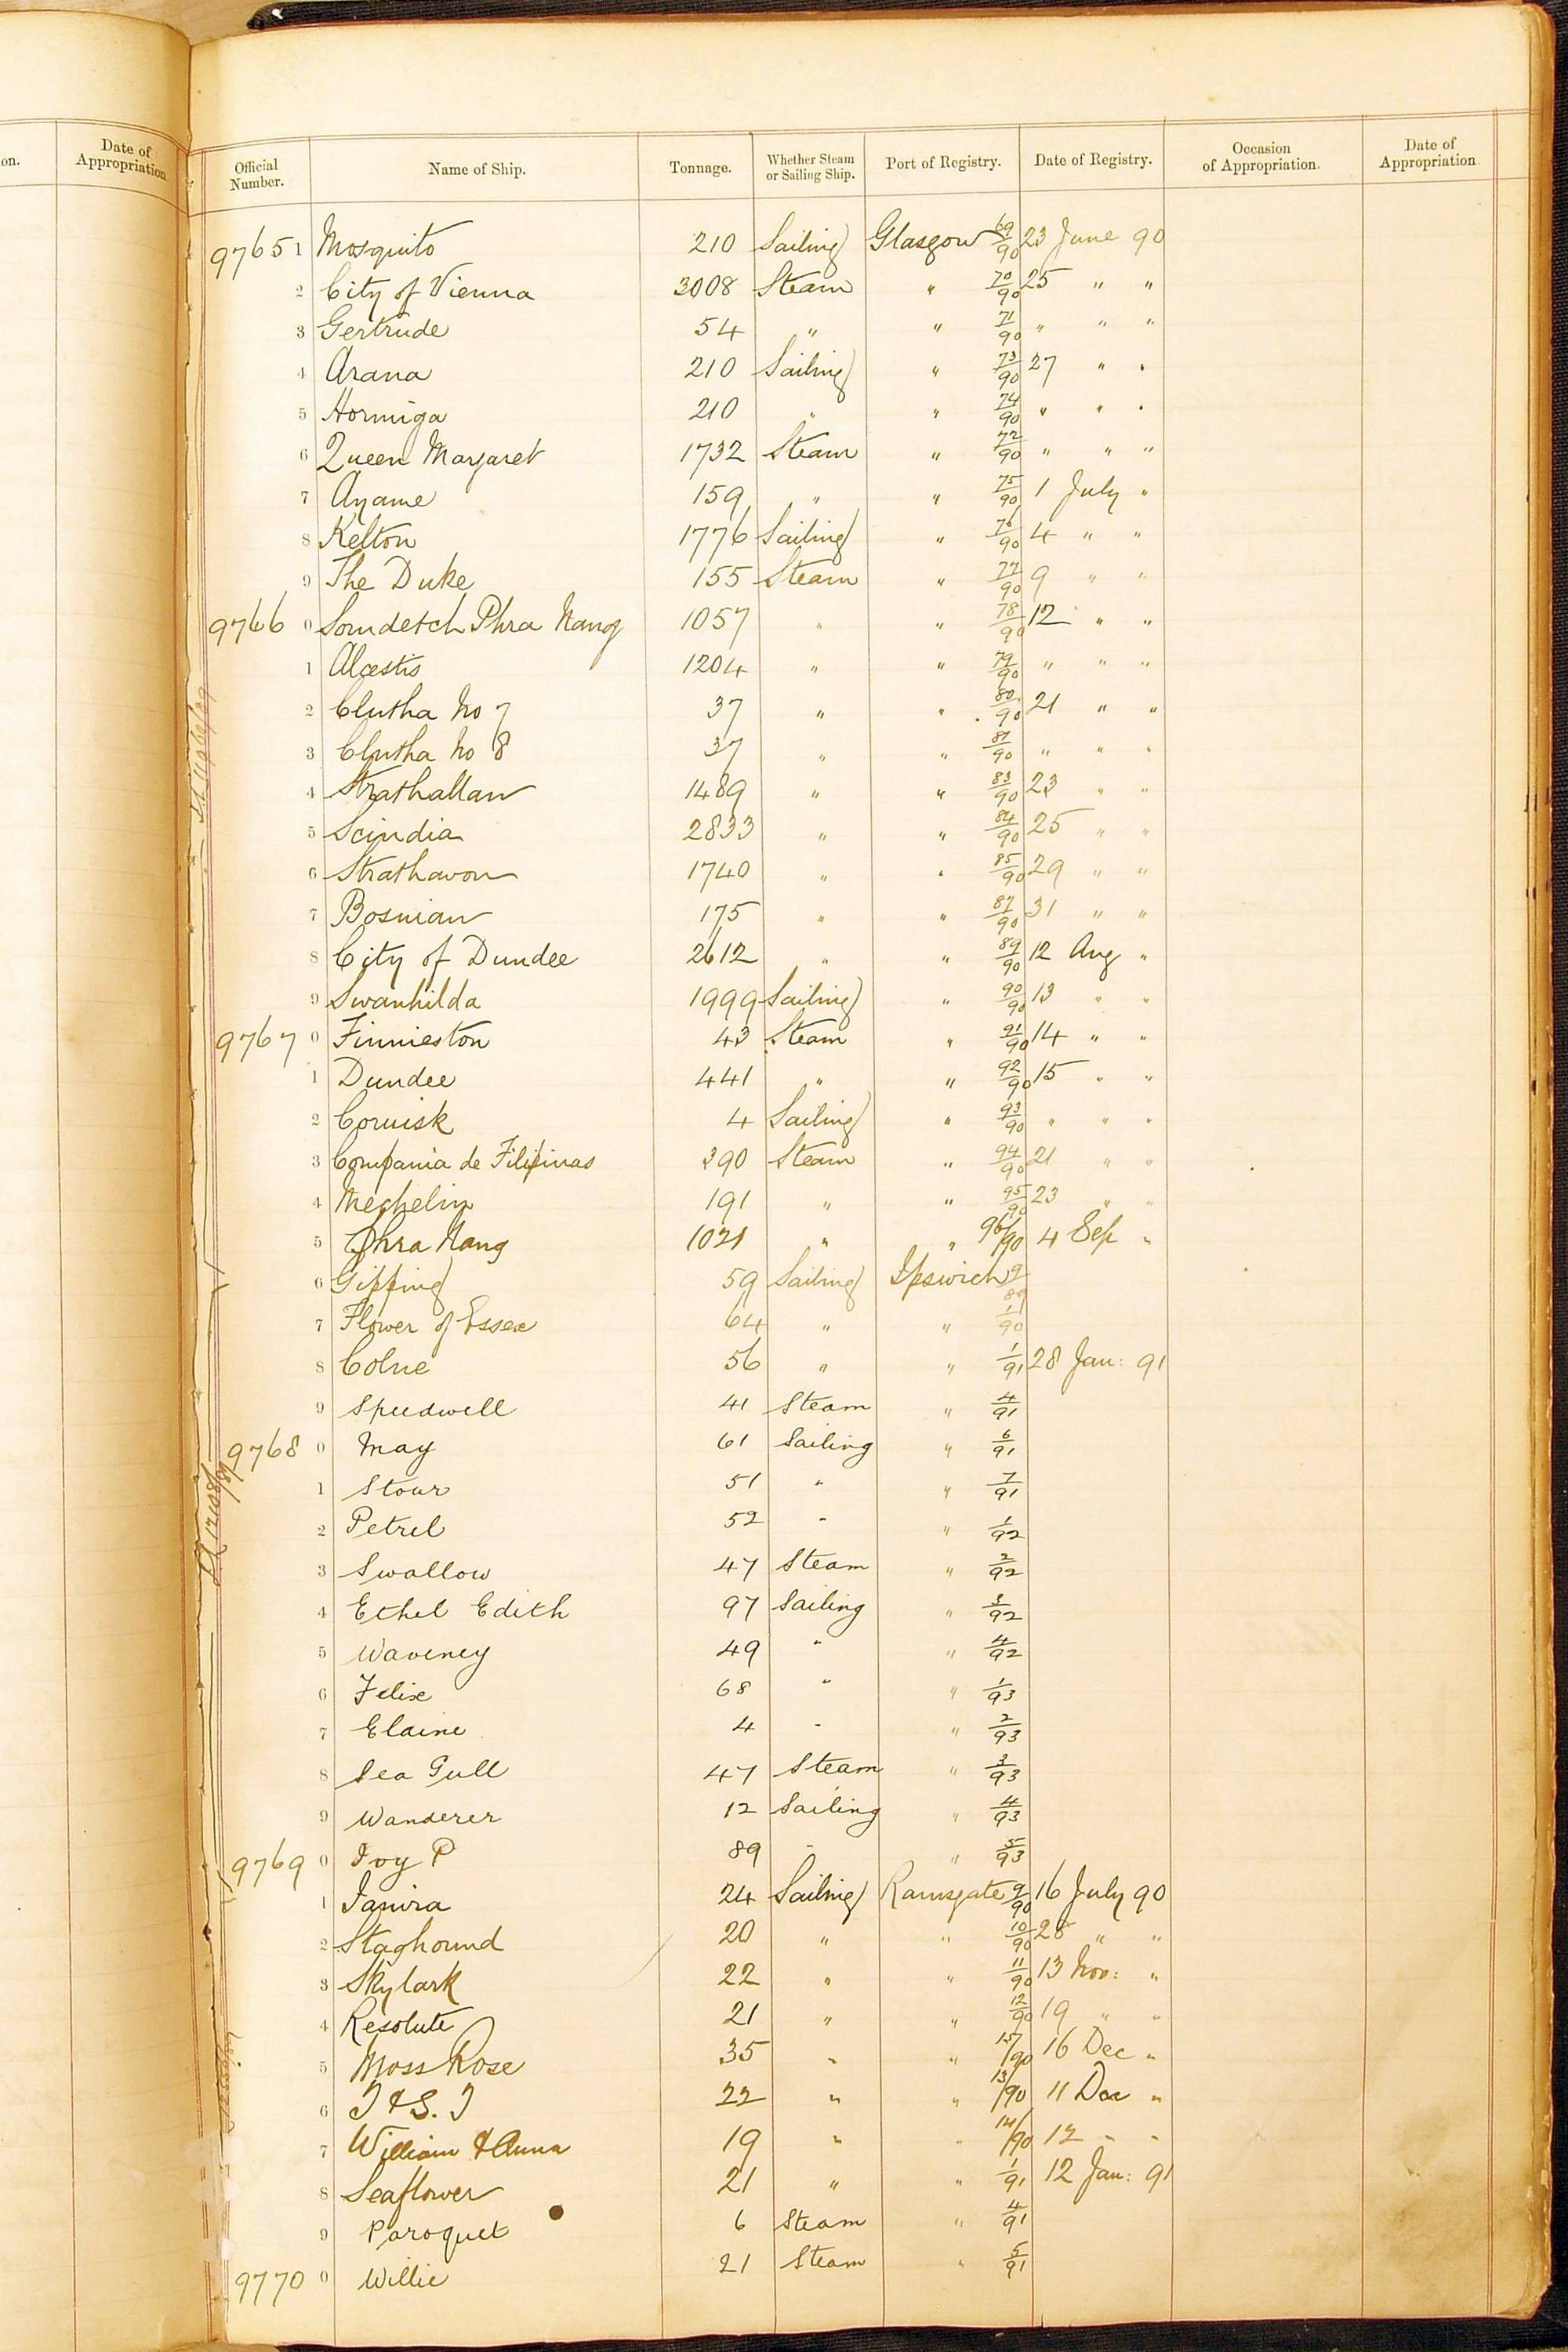 on. Date of Appropriation
Official Number. Name of Ship. Tonnage. Whether Steam or Sailing Ship. Port of Registry. Date of Registry. Occasion of Appropriation. Date of Appropriation
9765 1 Mosquito 210 Sailing Glasgow 69/90 23 June 90
2 City of Vienna 3008 Steam " 70/90 25 " "
3 Gertrude 54 " " 71/90 " " "
4 Arana 210 Sailing " 73/90 27 " "
5 Hormiga 210 " " 74/90 " " "
6 Queen Margaret 1732 Steam " 72/90 " " "
7 Ayame 159 " " 75/90 1 July "
8 Kelton 1776 Sailing " 76/90 4 " "
9 The Duke 155 Steam " 77/90 9 " "
9766 0 Somdetch Phra Nang 1057 " " 78/90 12 " "
1 Alcestis 1204 " " 79/90 " " "
2 Clutha No 7 37 " " 80/90 21 " "
3 Clutha No 8 37 " " 81/90 " " "
4 Strathallan 1489 " " 83/90 23 " "
5 Scindia 2833 " " 84/90 25 " "
6 Strathavon 1740 " " 85/90 29 " "
7 Bosnian 175 " " 87/90 31 " "
8 City of Dundee 2612 " " 89/90 12 Aug "
9 Swanhilda 1999 Sailing " 90/90 13 " "
9767 0 Finnieston 43 Steam " 91/90 14 " "
1 Dundee 441 " " 92/90 15 " "
2 Coruisk 4 Sailing " 93/90 " " "
3 Compania de Filipinas 390 Steam " 94/90 21 " "
4 Mechelin 191 " " 95/90 23 " "
5 Phra Nang 1021 " " 96/90 4 Sep "
6 Gipping 59 Sailing Ipswich 9/89
7 Flower of Essex 64 " " 11/90
8 Colne 56 " " 1/91 28 Jan: 91
9 Speedwell 41 Steam " 4/91
9768 0 May 61 Sailing " 6/91
1 Stour 51 " " 7/91
2 Petrel 52 " " 1/92
3 Swallow 47 Steam " 2/92
4 Ethel Edith 97 Sailing " 3/92
5 Waveney 49 " " 4/92
6 Felix 68 " " 1/93
7 Elaine 4 " " 2/93
8 Sea Gull 47 Steam " 3/93
9 Wanderer 12 Sailing " 4/93
9769 0 Ivy P 89 " " 5/93
1 Janira 24 Sailing Ramsgate 9/90 16 July 90
2 Staghound 20 " " 10/90 28 " "
3 Skylark 22 " " 11/90 13 Nov: "
4 Resolute 21 " " 12/90 19 " "
5 Moss Rose 35 " " 15/90 16 Dec "
6 J & S. J 22 " " 13/90 11 Dec "
7 William & Anna 19 " " 14/90 12 " "
8 Seaflower 21 " " 1/91 12 Jan: 91
9 Paroquet 6 Steam " 4/91
9770 0 Willie 21 Steam " 5/91